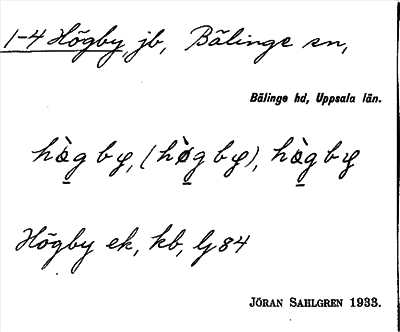 1-4 Högby, jb, Bälinge sn,
Bälinge hd, Uppsala län.
Högby ek, kb, lj 84
JÖRAN SAHLGREN 1933.